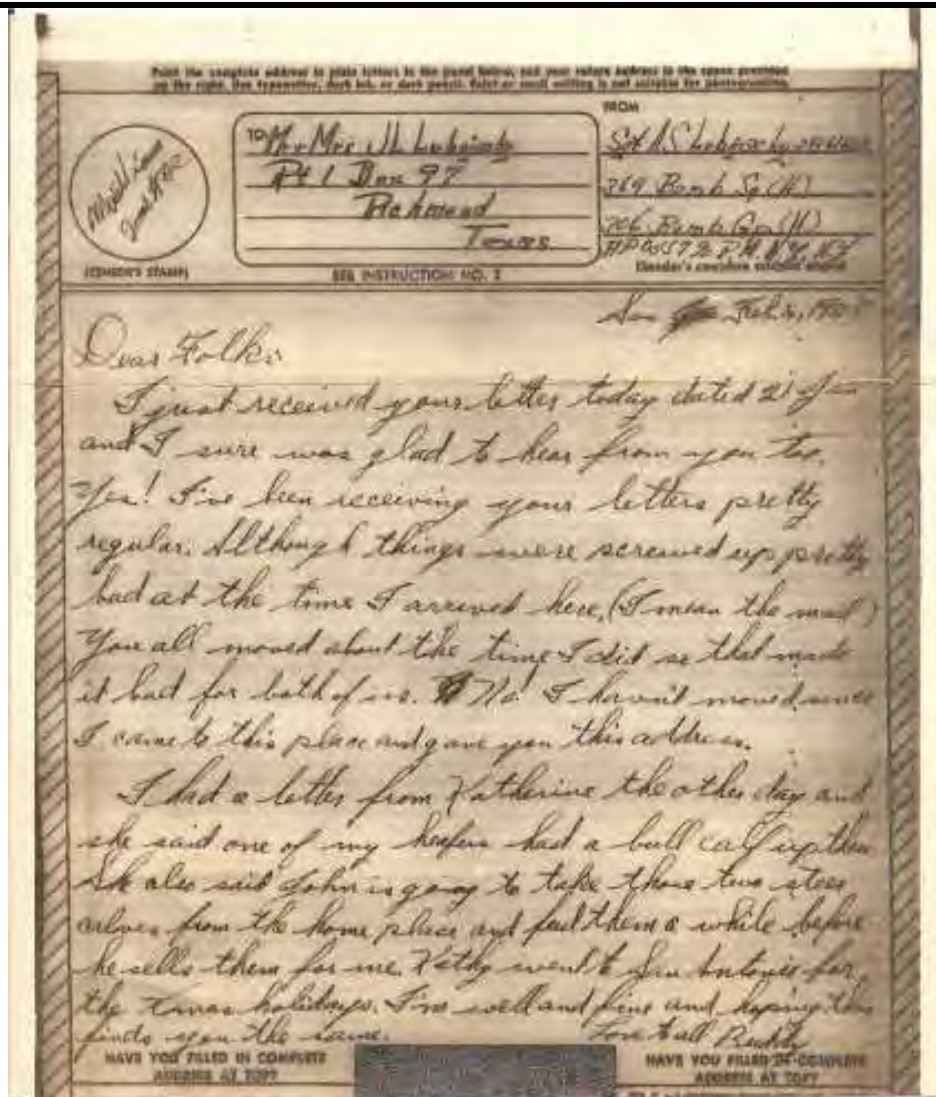 Print the complete address in plain letters in the panel below, and your return address in the space provided
on the right. Use typewriter, dark ink, or dark pencil. Faint or small writing is not suitable for photographing.
FROM
TO
Mr Mrs
Rt 1 Box 97
Richmond
Texas
Sgt
369 Bomb Sq (H)
306 Bomb Gp (H)
APO 557 % P.M. N.Y. N.Y.
(Sender's complete address above)
(CENSOR'S STAMP)
SEE INSTRUCTION NO. 2
Dear Folks:
I just received your letter today dated 21 Jan
and I sure was glad to hear from you too.
Yes! I've been receiving your letters pretty
regular. Although things were screwed up pretty
bad at the time I arrived here, (I mean the mail)
You all moved about the time I did so that made
it bad for both of us. No! I haven't moved since
I came to this place and gave you this address.
I had a letter from Katherine the other day and
she said one of my heafers had a bull calf up there
She also said John is going to take those two steer
calves from the home place and feed them a while before
he sells them for me. Kathy went to San Antonio for
the Xmas holidays. I'm well and fine and hoping this
finds you the same.
Love to all
HAVE YOU FILLED IN COMPLETE
ADDRESS AT TOP?
HAVE YOU FILLED IN COMPLETE
ADDRESS AT TOP?